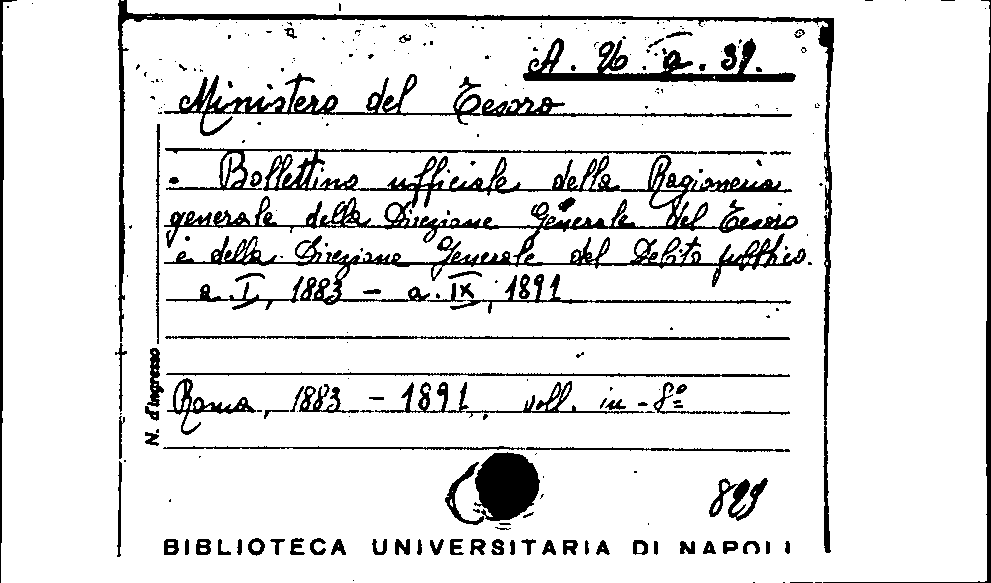 A. 26. a. 39.
Ministero del Tesoro
- Bollettino ufficiale della Ragioneria
generale, della Direzione Generale del Tesoro
e della Direzione Generale del Debito pubblico.
a. I, 1883 - a. IX, 1891
N. d'ingresso
Roma, 1883 - 1891, voll. in-8º
899
BIBLIOTECA UNIVERSITARIA DI NAPOLI